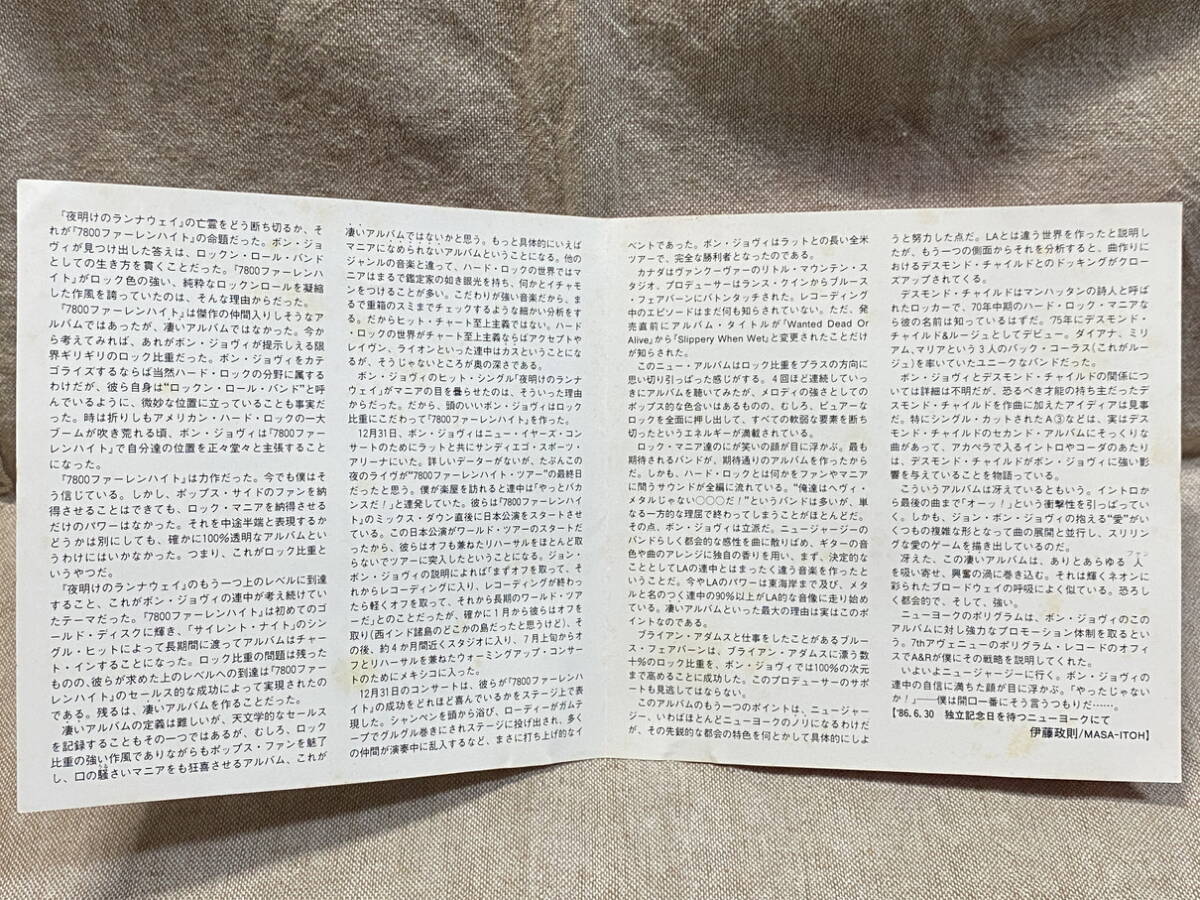 『夜明けのランナウェイ』の亡霊をどう断ち切るか、そ
れが『7800ファーレンハイト』の命題だった。ボン・ジョ
ヴィが見つけ出した答えは、ロックン・ロール・バンド
としての生き方を貫くことだった。『7800ファーレンハ
イト』がロック色の強い、純粋なロックンロールを凝縮
した作風を誇っていたのは、そんな理由からだった。
『7800ファーレンハイト』は傑作の仲間入りしそうなア
ルバムではあったが、凄いアルバムではなかった。今か
ら考えてみれば、あれがボン・ジョヴィが提示しえる限
界ギリギリのロック比重だった。ボン・ジョヴィをカテ
ゴライズするならば当然ハード・ロックの分野に属する
わけだが、彼ら自身は“ロックン・ロール・バンド”と呼
んでいるように、微妙な位置に立っていることも事実だ
った。時は折りしもアメリカン・ハード・ロックの一大
ブームが吹き荒れる頃、ボン・ジョヴィは『7800ファー
レンハイト』で自分達の位置を正々堂々と主張すること
になった。
『7800ファーレンハイト』は力作だった。今でも僕はそ
う信じている。しかし、ポップス・サイドのファンを納
得させることはできても、ロック・マニアを納得させる
だけのパワーはなかった。それを中途半端と表現するか
どうかは別にしても、確かに100%透明なアルバムという
わけにはいかなかった。つまり、これがロック比重と
いうやつだ。
『夜明けのランナウェイ』のもう一つ上のレベルに到達
すること、これがボン・ジョヴィの連中が考え続けてい
たテーマだった。『7800ファーレンハイト』は初めてのゴ
ールド・ディスクに輝き、「サイレント・ナイト」のシン
グル・ヒットによって長期間に渡ってアルバムはチャー
ト・インすることになった。ロック比重の問題は残った
ものの、彼らが求めた上のレベルへの到達は『7800ファー
レンハイト』のセールス的な成功によって実現されたの
である。残るは、凄いアルバムを作ることだった。
凄いアルバムの定義は難しいが、天文学的なセールス
を記録することもその一つではあるが、むしろ、ロック
比重の強い作風でありながらもポップス・ファンを魅了
し、口の騒さいマニアをも狂喜させるアルバム、これが
凄いアルバムではないかと思う。もっと具体的にいえば
マニアになめられないアルバムということになる。他の
ジャンルの音楽と違って、ハード・ロックの世界ではマ
ニアはまるで鑑定家の如き眼光を持ち、何かとイチャモ
ンをつけることが多い。こだわりが強い音楽だから、ま
るで重箱のスミまでチェックするような細かい分析をす
る。だからヒット・チャート至上主義ではない。ハード
・ロックの世界がチャート至上主義ならばアクセプトや
レイヴン、ライオンといった連中はカスということにな
るが、そうじゃないところが奥の深さである。
ボン・ジョヴィのヒット・シングル「夜明けのランナ
ウェイ」がマニアの目を曇らせたのは、そういった理由
からだった。だから、頭のいいボン・ジョヴィはロック
比重にこだわって『7800ファーレンハイト』を作った。
12月31日、ボン・ジョヴィはニュー・イヤーズ・コン
サートのためにラットと共にサンディエゴ・スポーツ・
アリーナにいた。詳しいデーターがないが、たぶんこの
夜のライヴが“7800ファーレンハイト・ツアー”の最終日
だったと思う。僕が楽屋を訪れると連中は「やっとバカ
ンスだ!」と連発していた。彼らは『7800ファーレンハイ
ト』のミックス・ダウン直後に日本公演をスタートさせ
ている。この日本公演がワールド・ツアーのスタートだ
ったから、彼らはオフも兼ねたリハーサルをほとんど取
らないでツアーに突入したということになる。ジョン・
ボン・ジョヴィの説明によれば「まずオフを取って、そ
れからレコーディングに入り、レコーディングが終わっ
たら軽くオフを取って、それから長期のワールド・ツア
ーだ」とのことだったが、確かに1月から彼らはオフを
取り(西インド諸島のどこかの島だったと思うけど)、そ
の後、約4か月間近くスタジオに入り、7月上旬からオ
フとリハーサルを兼ねたウォーミングアップ・コンサー
トのためにメキシコに入った。
12月31日のコンサートは、彼らが『7800ファーレンハ
イト』の成功をどれほど喜んでいるかをステージ上で表
現した。シャンペンを頭から浴び、ローディーがガムテ
ープでグルグル巻きにされステージに投げ出され、多く
の仲間が演奏中に乱入するなど、まさに打ち上げ的なイ
ベントであった。ボン・ジョヴィはラットとの長い全米
ツアーで、完全な勝利者となったのである。
カナダはヴァンクーヴァーのリトル・マウンテン・ス
タジオ、プロデューサーはランス・クインからブルース
・フェアバーンにバトンタッチされた。レコーディング
中のエピソードはまだ何も知らされていない。ただ、発
売直前にアルバム・タイトルが「Wanted Dead Or
Alive」から「Slippery When Wet」と変更されたことだけ
が知らされた。
このニュー・アルバムはロック比重をプラスの方向に
思い切り引っぱった感じがする。4回ほど連続していっ
きにアルバムを聴いてみたが、メロディの強さとしての
ポップス的な色合いはあるものの、むしろ、ピュアーな
ロックを全面に押し出して、すべての軟弱な要素を断ち
切ったというエネルギーが満載されている。
ロック・マニア達のにが笑いの顔が目に浮かぶ。最も
期待されるバンドが、期待通りのアルバムを作ったから
だ。しかも、ハード・ロックとは何かをファンやマニア
に問うサウンドが全編に流れている。“俺達はヘヴィ・
メタルじゃない○○○だ!”というバンドは多いが、単
なる一方的な理屈で終わってしまうことがほとんどだ。
その点、ボン・ジョヴィは立派だ。ニュージャージーの
バンドらしく都会的な感性を曲に散りばめ、ギターの音
色や曲のアレンジに独自の香りを用い、まず、決定的な
こととしてLAの連中とはまったく違う音楽を作ったと
いうことだ。今やLAのパワーは東海岸まで及び、メタ
ルと名のつく連中の90%以上がLA的な音像に走り始め
ている。凄いアルバムといった最大の理由は実はこのポ
イントなのである。
ブライアン・アダムスと仕事をしたことがあるブルー
ス・フェアバーンは、ブライアン・アダムスに漂う数
十%のロック比重を、ボン・ジョヴィでは100%の次元
まで高めることに成功した。このプロデューサーのサポ
ートも見逃してはならない。
このアルバムのもう一つのポイントは、ニュージャー
ジー、いわばほとんどニューヨークのノリになるわけだ
が、その先鋭的な都会の特色を何とかして具体的にしよ
うと努力した点だ。LAとは違う世界を作ったと説明し
たが、もう一つの側面からそれを分析すると、曲作りに
おけるデスモンド・チャイルドとのドッキングがクロー
ズアップされてくる。
デスモンド・チャイルドはマンハッタンの詩人と呼ば
れたロッカーで、70年中期のハード・ロック・マニアな
ら彼の名前は知っているはずだ。'75年にデスモンド・
チャイルド&ルージュとしてデビュー。ダイアナ、ミリ
アム、マリアという3人のバック・コーラス(これがルー
ジュ)を率いていたユニークなバンドだった。
ボン・ジョヴィとデスモンド・チャイルドの関係につ
いては詳細は不明だが、恐るべき才能の持ち主だったデ
スモンド・チャイルドを作曲に加えたアイディアは見事
だ。特にシングル・カットされたA③などは、実はデス
モンド・チャイルドのセカンド・アルバムにそっくりな
曲があって、アカペラで入るイントロやコーダのあたり
は、デスモンド・チャイルドがボン・ジョヴィに強い影
響を与えていることを物語っている。
こういうアルバムは冴えているともいう。イントロか
ら最後の曲まで「オーッ!」という衝撃性を引っぱってい
く。しかも、ジョン・ボン・ジョヴィの抱える“愛”がい
くつもの複雑な形となって曲の展開と並行し、スリリン
グな愛のゲームを描き出しているのだ。
冴えた、この凄いアルバムは、ありとあらゆる“人”ファン
を吸い寄せ、興奮の渦に巻き込む。それは輝くネオンに
彩られたブロードウェイの呼吸によく似ている。恐ろし
く都会的で、そして、強い。
ニューヨークのポリグラムは、ボン・ジョヴィのこの
アルバムに対し強力なプロモーション体制を取るとい
う。7thアヴェニューのポリグラム・レコードのオフィ
スでA&Rが僕にその戦略を説明してくれた。
いよいよニュージャージーに行く。ボン・ジョヴィの
連中の自信に満ちた顔が目に浮かぶ。「やったじゃない
か!」――僕は開口一番にそう言うつもりだ……。
【'86.6.30 独立記念日を待つニューヨークにて
伊藤政則/MASA-ITOH】